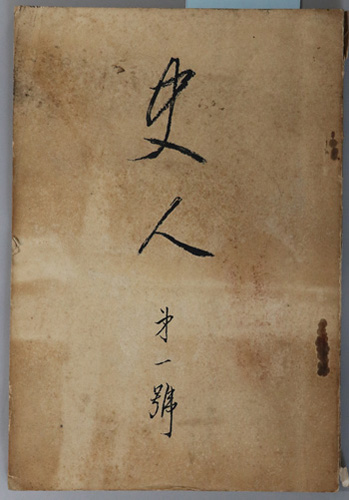 史人
第一號